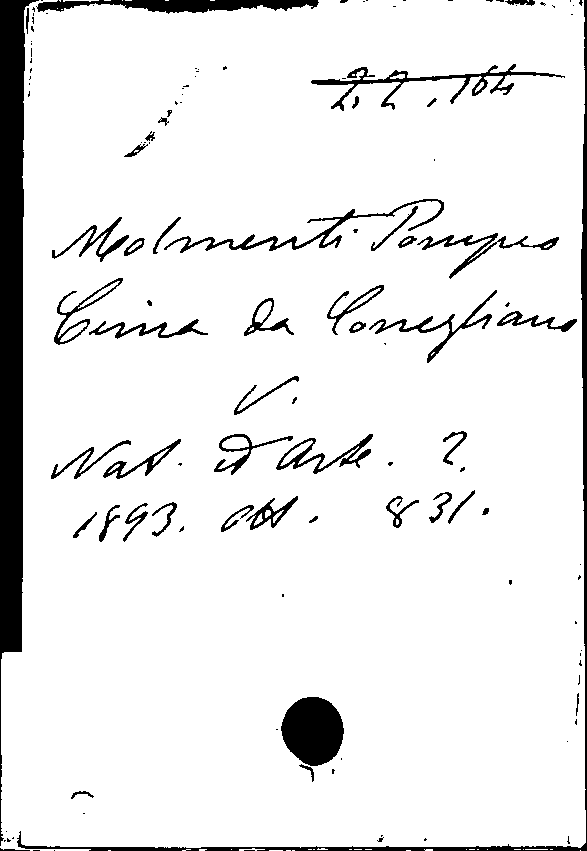 22.164
Molmenti Pompeo
Cima da Conegliano
V.
Nat. ed Arte. 2.
1893. ott. 831.